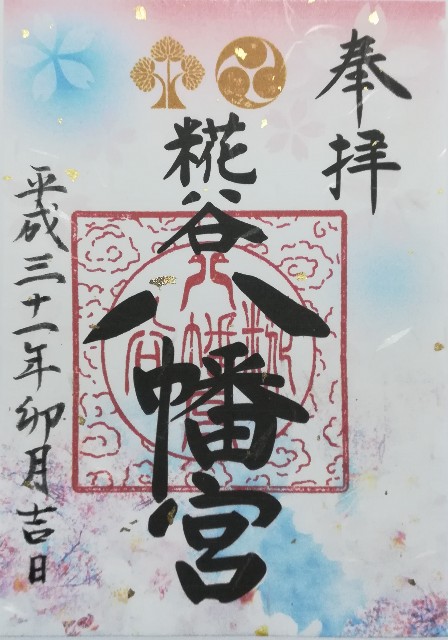 奉拝
糀谷
八幡宮
平成三十一年卯月吉日